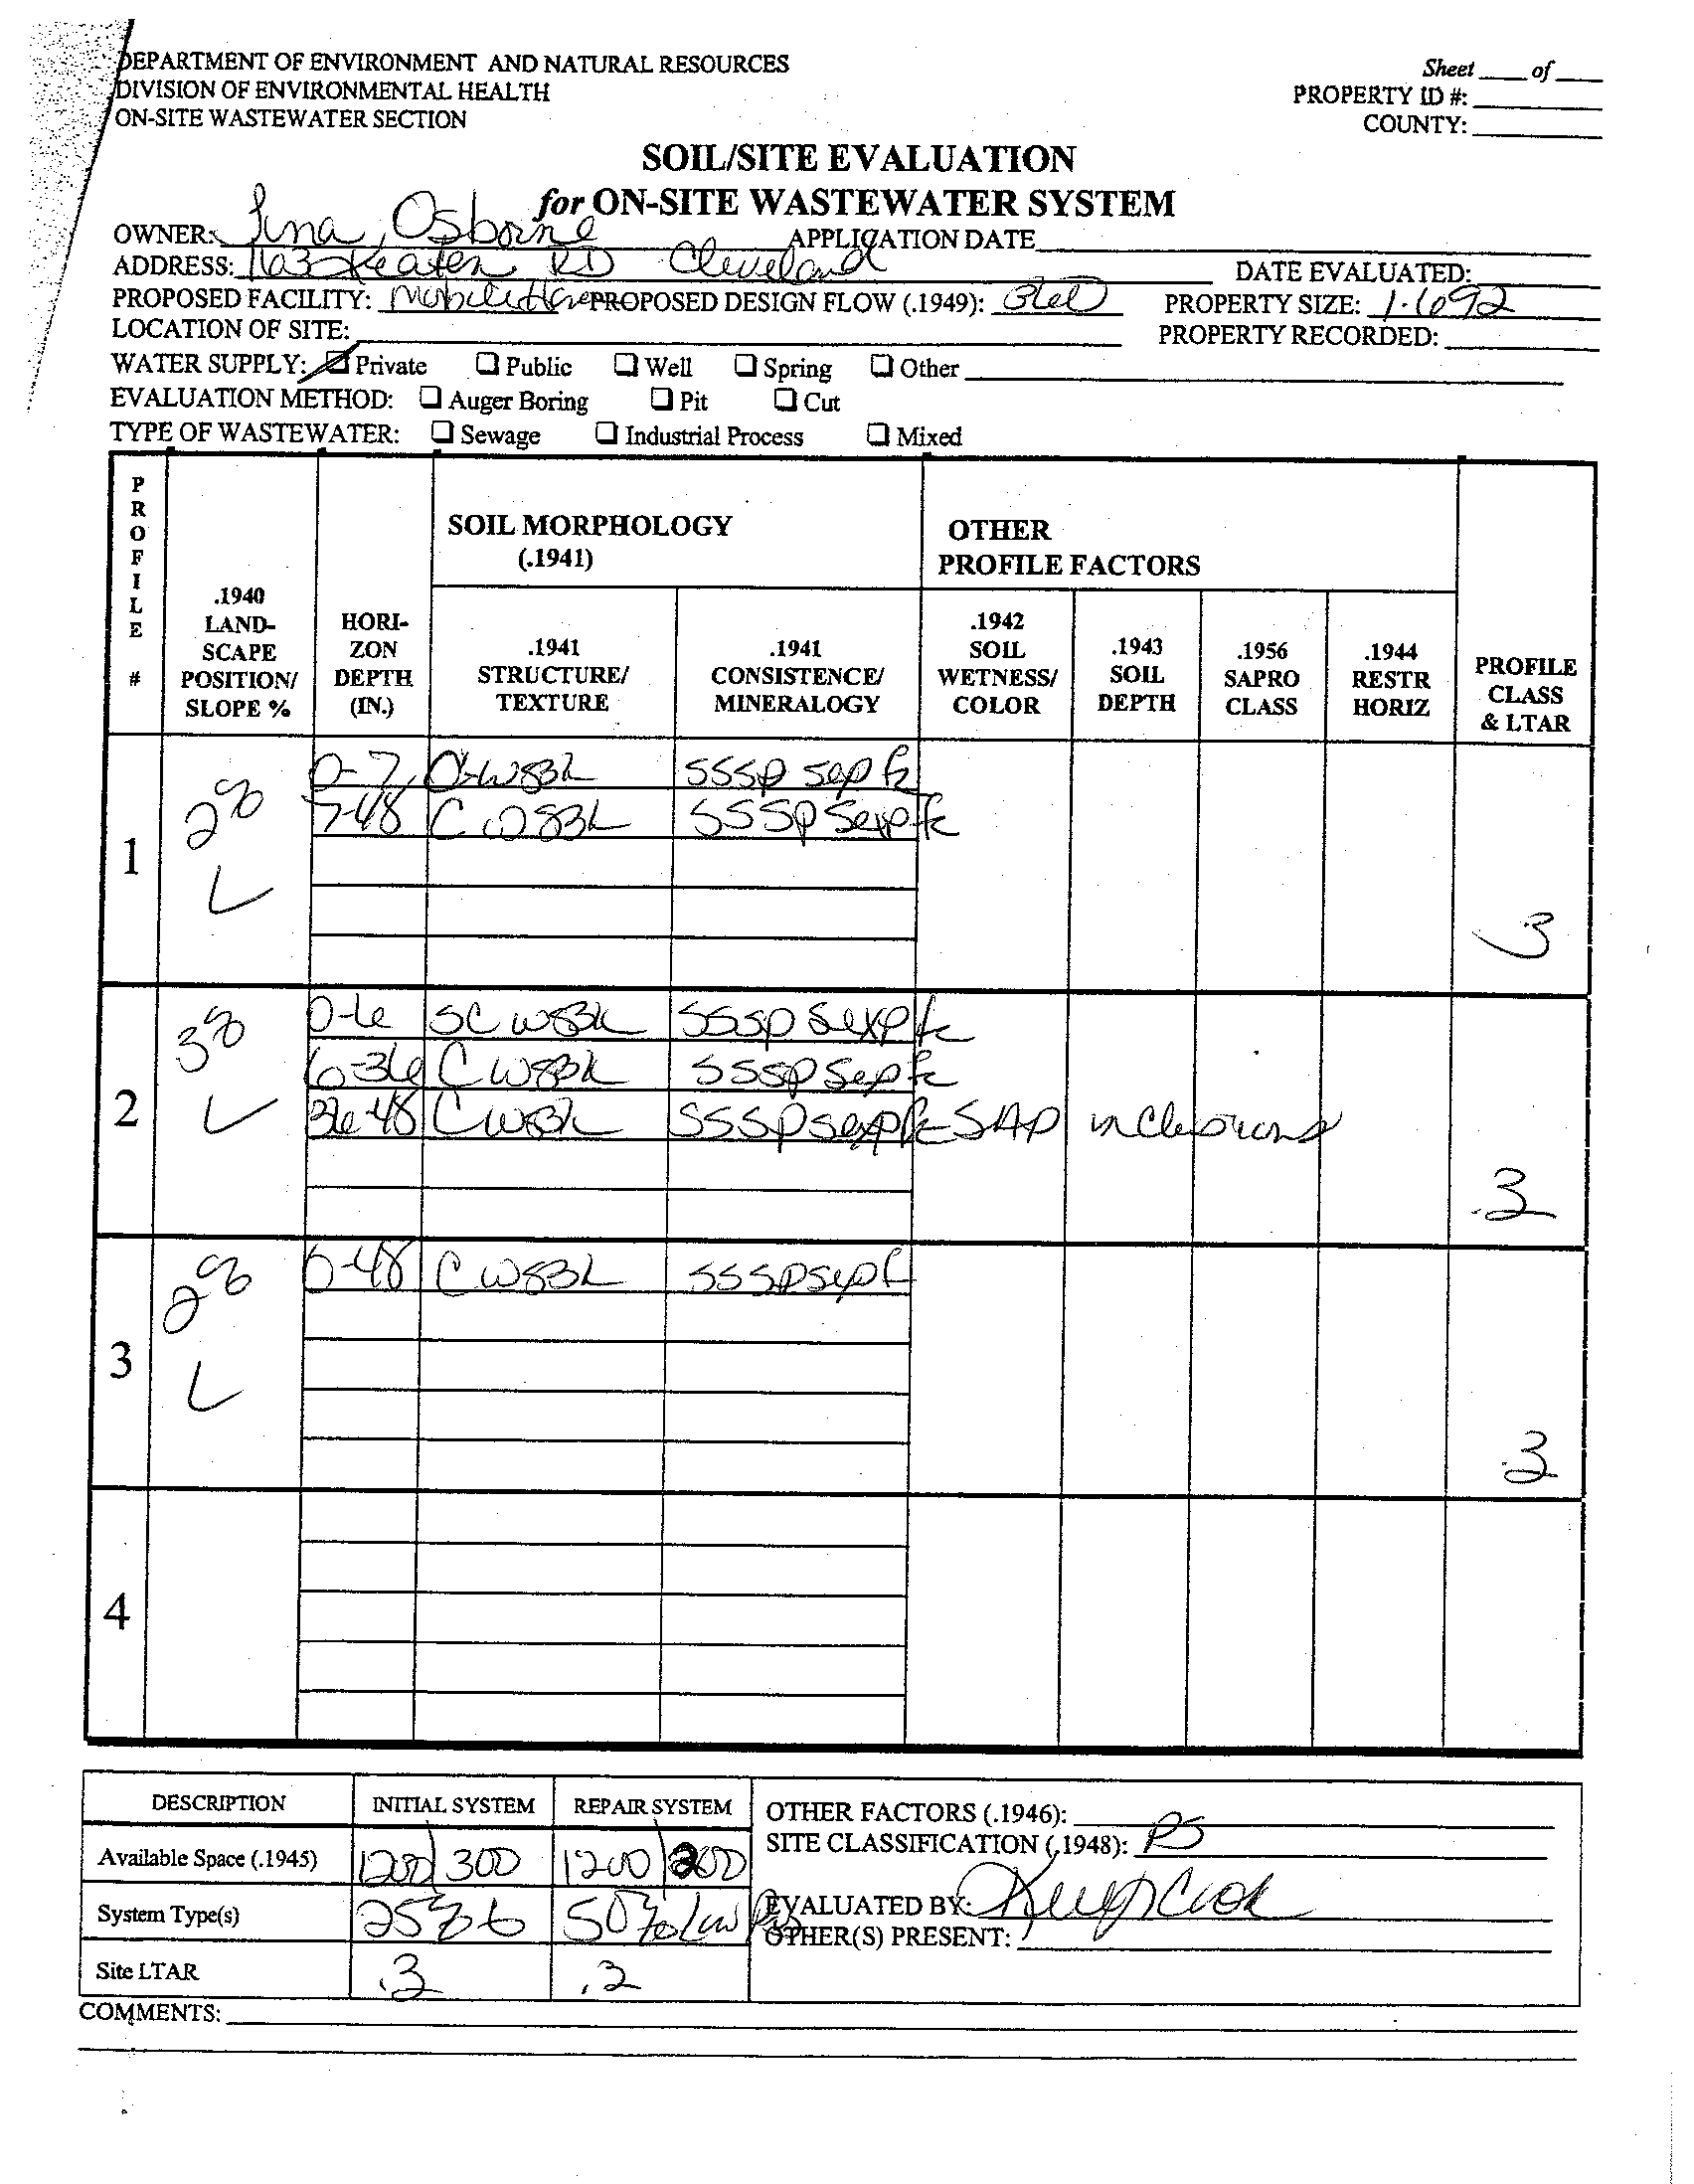 DEPARTMENT OF ENVIRONMENT AND NATURAL RESOURCES
DIVISION OF ENVIRONMENTAL HEALTH
ON-SITE WASTEWATER SECTION
Sheet ____ of ____
PROPERTY ID #:
COUNTY:
SOIL/SITE EVALUATION
for ON-SITE WASTEWATER SYSTEM
OWNER: Osborne APPLICATION DATE
ADDRESS: RD Cleveland DATE EVALUATED:
PROPOSED FACILITY: Mobile Home PROPOSED DESIGN FLOW (.1949): PROPERTY SIZE: 1.692
LOCATION OF SITE: PROPERTY RECORDED:
WATER SUPPLY: Private Public Well Spring Other
EVALUATION METHOD: Auger Boring Pit Cut
TYPE OF WASTEWATER: Sewage Industrial Process Mixed
PROFILE #
.1940 LAND-SCAPE POSITION/ SLOPE %
HORI-ZON DEPTH (IN.)
SOIL MORPHOLOGY
(.1941)
.1941 STRUCTURE/ TEXTURE
.1941 CONSISTENCE/ MINERALOGY
OTHER
PROFILE FACTORS
.1942 SOIL WETNESS/ COLOR
.1943 SOIL DEPTH
.1956 SAPRO CLASS
.1944 RESTR HORIZ
PROFILE CLASS & LTAR
1 2% L
0-7
7-48 C
.3
2 3% L
0-6 SC
6-36 C
36-48 C SAP inclusions
.3
3 2% L
0-48 C
.3
4
DESCRIPTION INITIAL SYSTEM REPAIR SYSTEM
Available Space (.1945) 1200 300 1200 200
System Type(s) 25% 50% Low
Site LTAR .3
OTHER FACTORS (.1946):
SITE CLASSIFICATION (.1948): PS
EVALUATED BY:
OTHER(S) PRESENT:
COMMENTS: